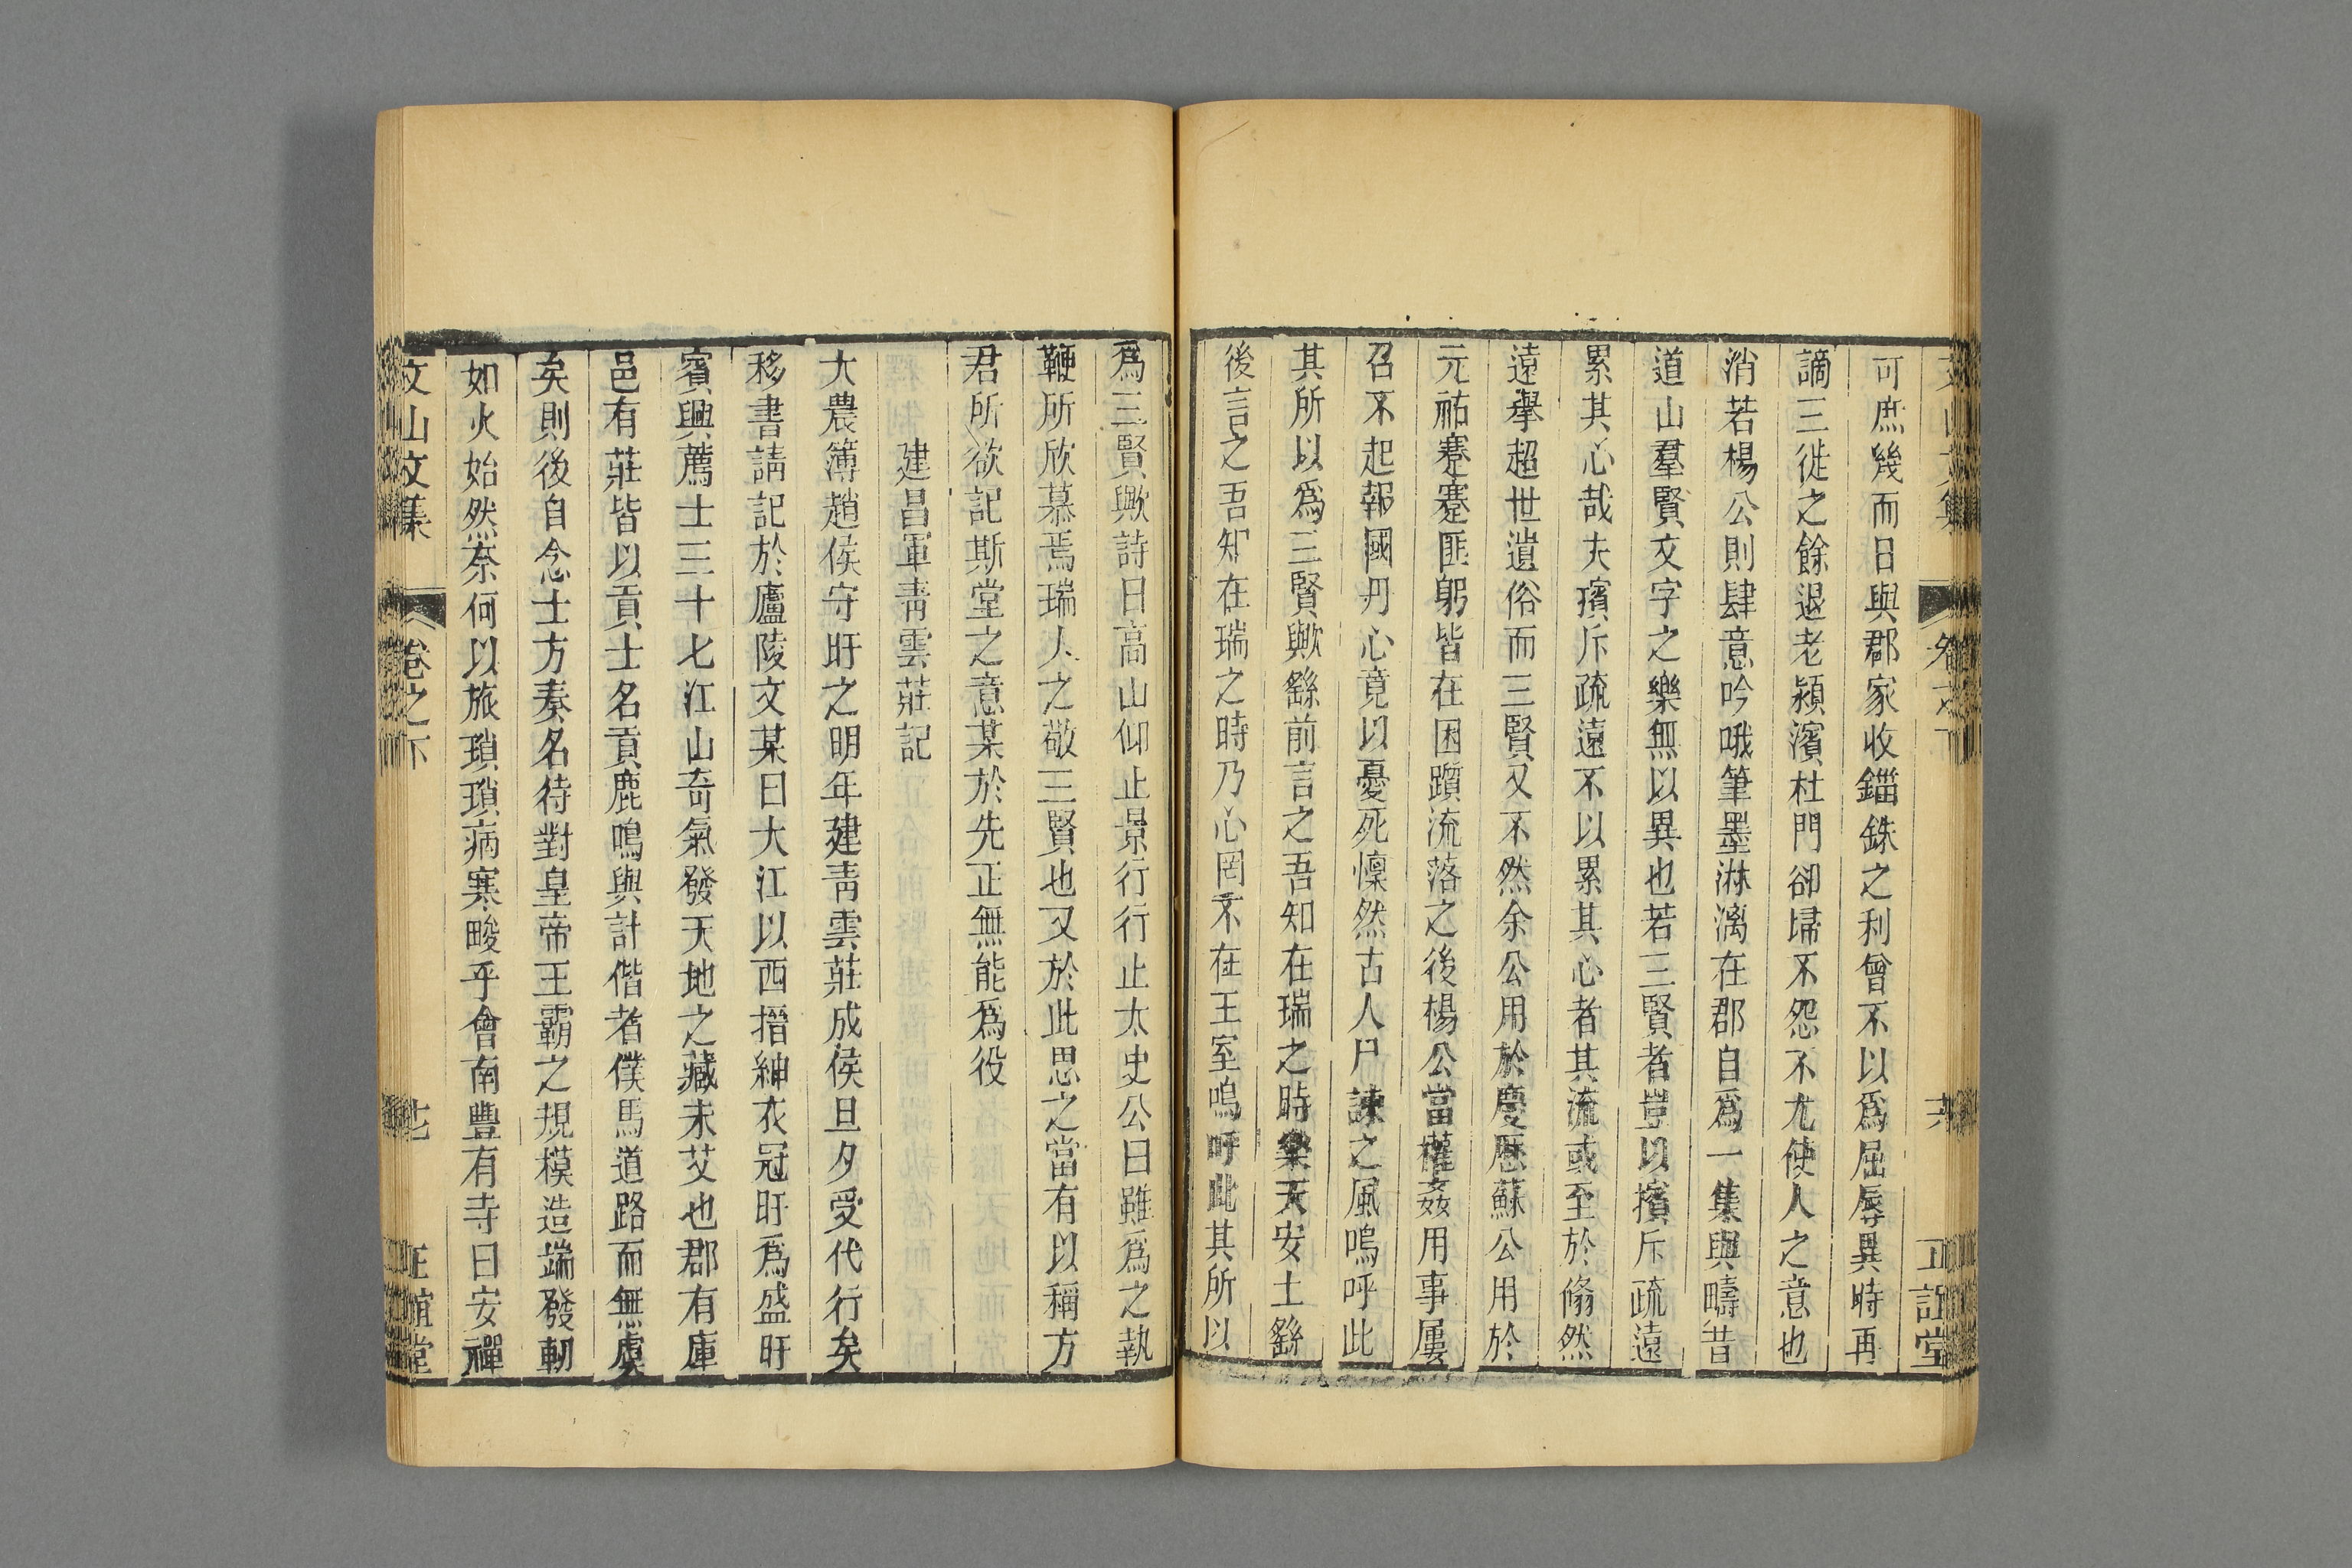 可庶幾而日與郡家收錙銖之利曾不以爲屈辱異時再
謫三徙之餘退老潁濱杜門卻掃不怨不尤使人之意也
消若楊公則肆意吟哦筆墨淋漓在郡自爲一集與疇昔
道山羣賢文字之樂無以異也若三賢者豈以擯斥疏遠
累其心哉夫擯斥疏遠不以累其心者其流或至於翛然
遠舉超世遺俗而三賢又不然余公用於慶歷蘇公用於
元祐蹇蹇匪躬皆在困躓流落之後楊公當權姦用事屢
召不起報國丹心竟以憂死懍然古人尸諫之風嗚呼此
其所以爲三賢歟繇前言之吾知在瑞之時樂天安土繇
後言之吾知在瑞之時乃心罔不在王室嗚呼此其所以
爲三賢歟詩曰高山仰止景行行止太史公曰雖爲之執
鞭所欣慕焉瑞人之敬三賢也又於此思之當有以稱方
君所欲記斯堂之意某於先正無能爲役
建昌軍靑雲莊記
大農簿趙侯守旴之明年建靑雲莊成侯旦夕受代行矣
移書請記於廬陵文某曰大江以西搢紳衣冠旴爲盛旴
賓興薦士三十七江山奇氣發天地之藏未艾也郡有庫
邑有莊皆以貢士名貢鹿鳴與計偕者僕馬道路而無虞
矣則後自念士方奏名待對皇帝王霸之規模造端發軔
如火始然奈何以旅瑣瑣病寒畯乎會南豐有寺曰安禪
文山文集 卷之下 七 正誼堂